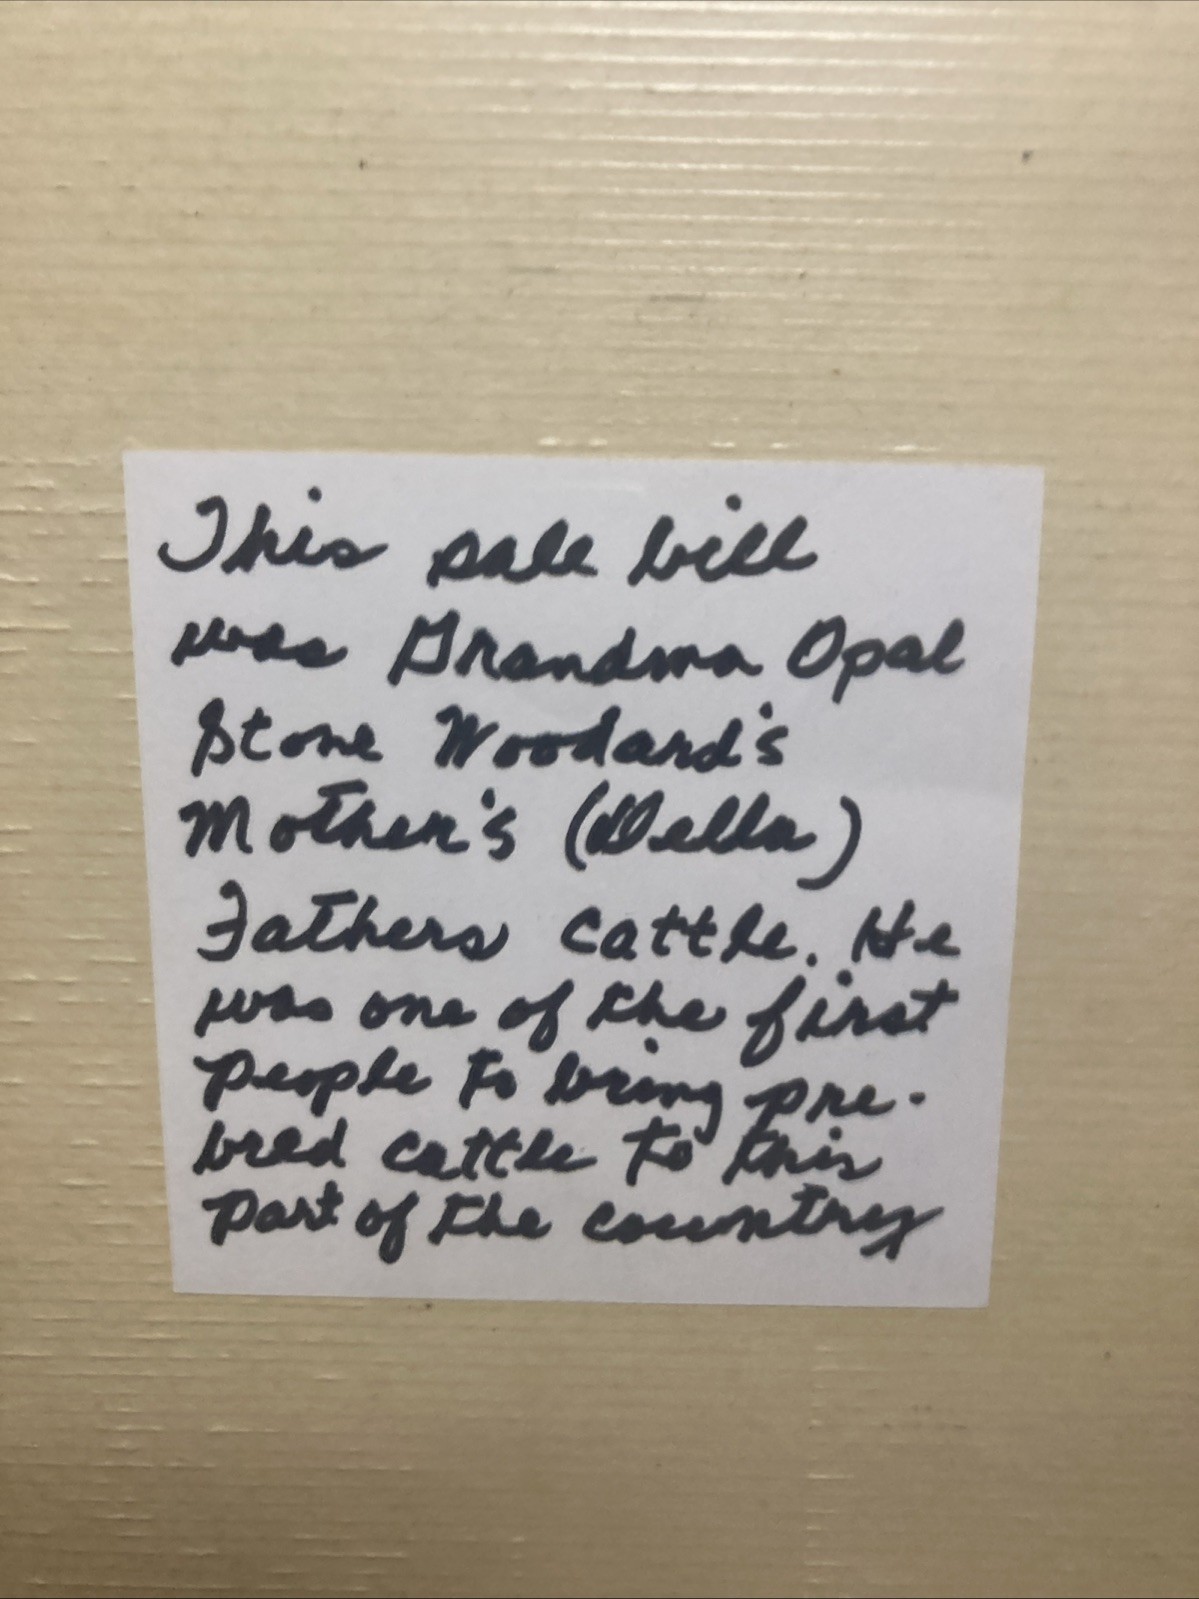 This sale bill
was Grandma Opal
Stone Woodard's
Mother's (Della)
Fathers cattle. He
was one of the first
people to bring pre-
bred cattle to this
part of the country